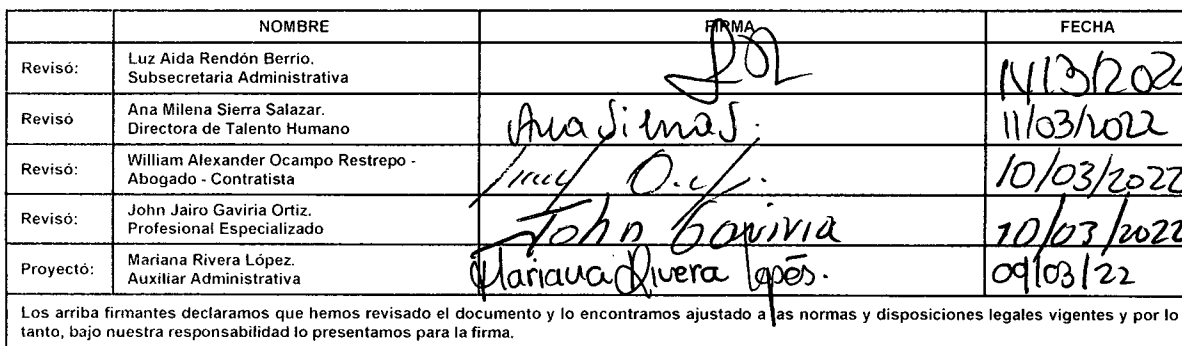 NOMBRE FIRMA FECHA
Revisó: Luz Aida Rendón Berrio.
Subsecretaria Administrativa
Revisó Ana Milena Sierra Salazar.
Directora de Talento Humano 11/03/2022
Revisó: William Alexander Ocampo Restrepo -
Abogado - Contratista 10/03/2022
Revisó: John Jairo Gaviria Ortiz.
Profesional Especializado John Gaviria 10/03/2022
Proyectó: Mariana Rivera López.
Auxiliar Administrativa Mariana Rivera López. 09/03/22
Los arriba firmantes declaramos que hemos revisado el documento y lo encontramos ajustado a las normas y disposiciones legales vigentes y por lo
tanto, bajo nuestra responsabilidad lo presentamos para la firma.